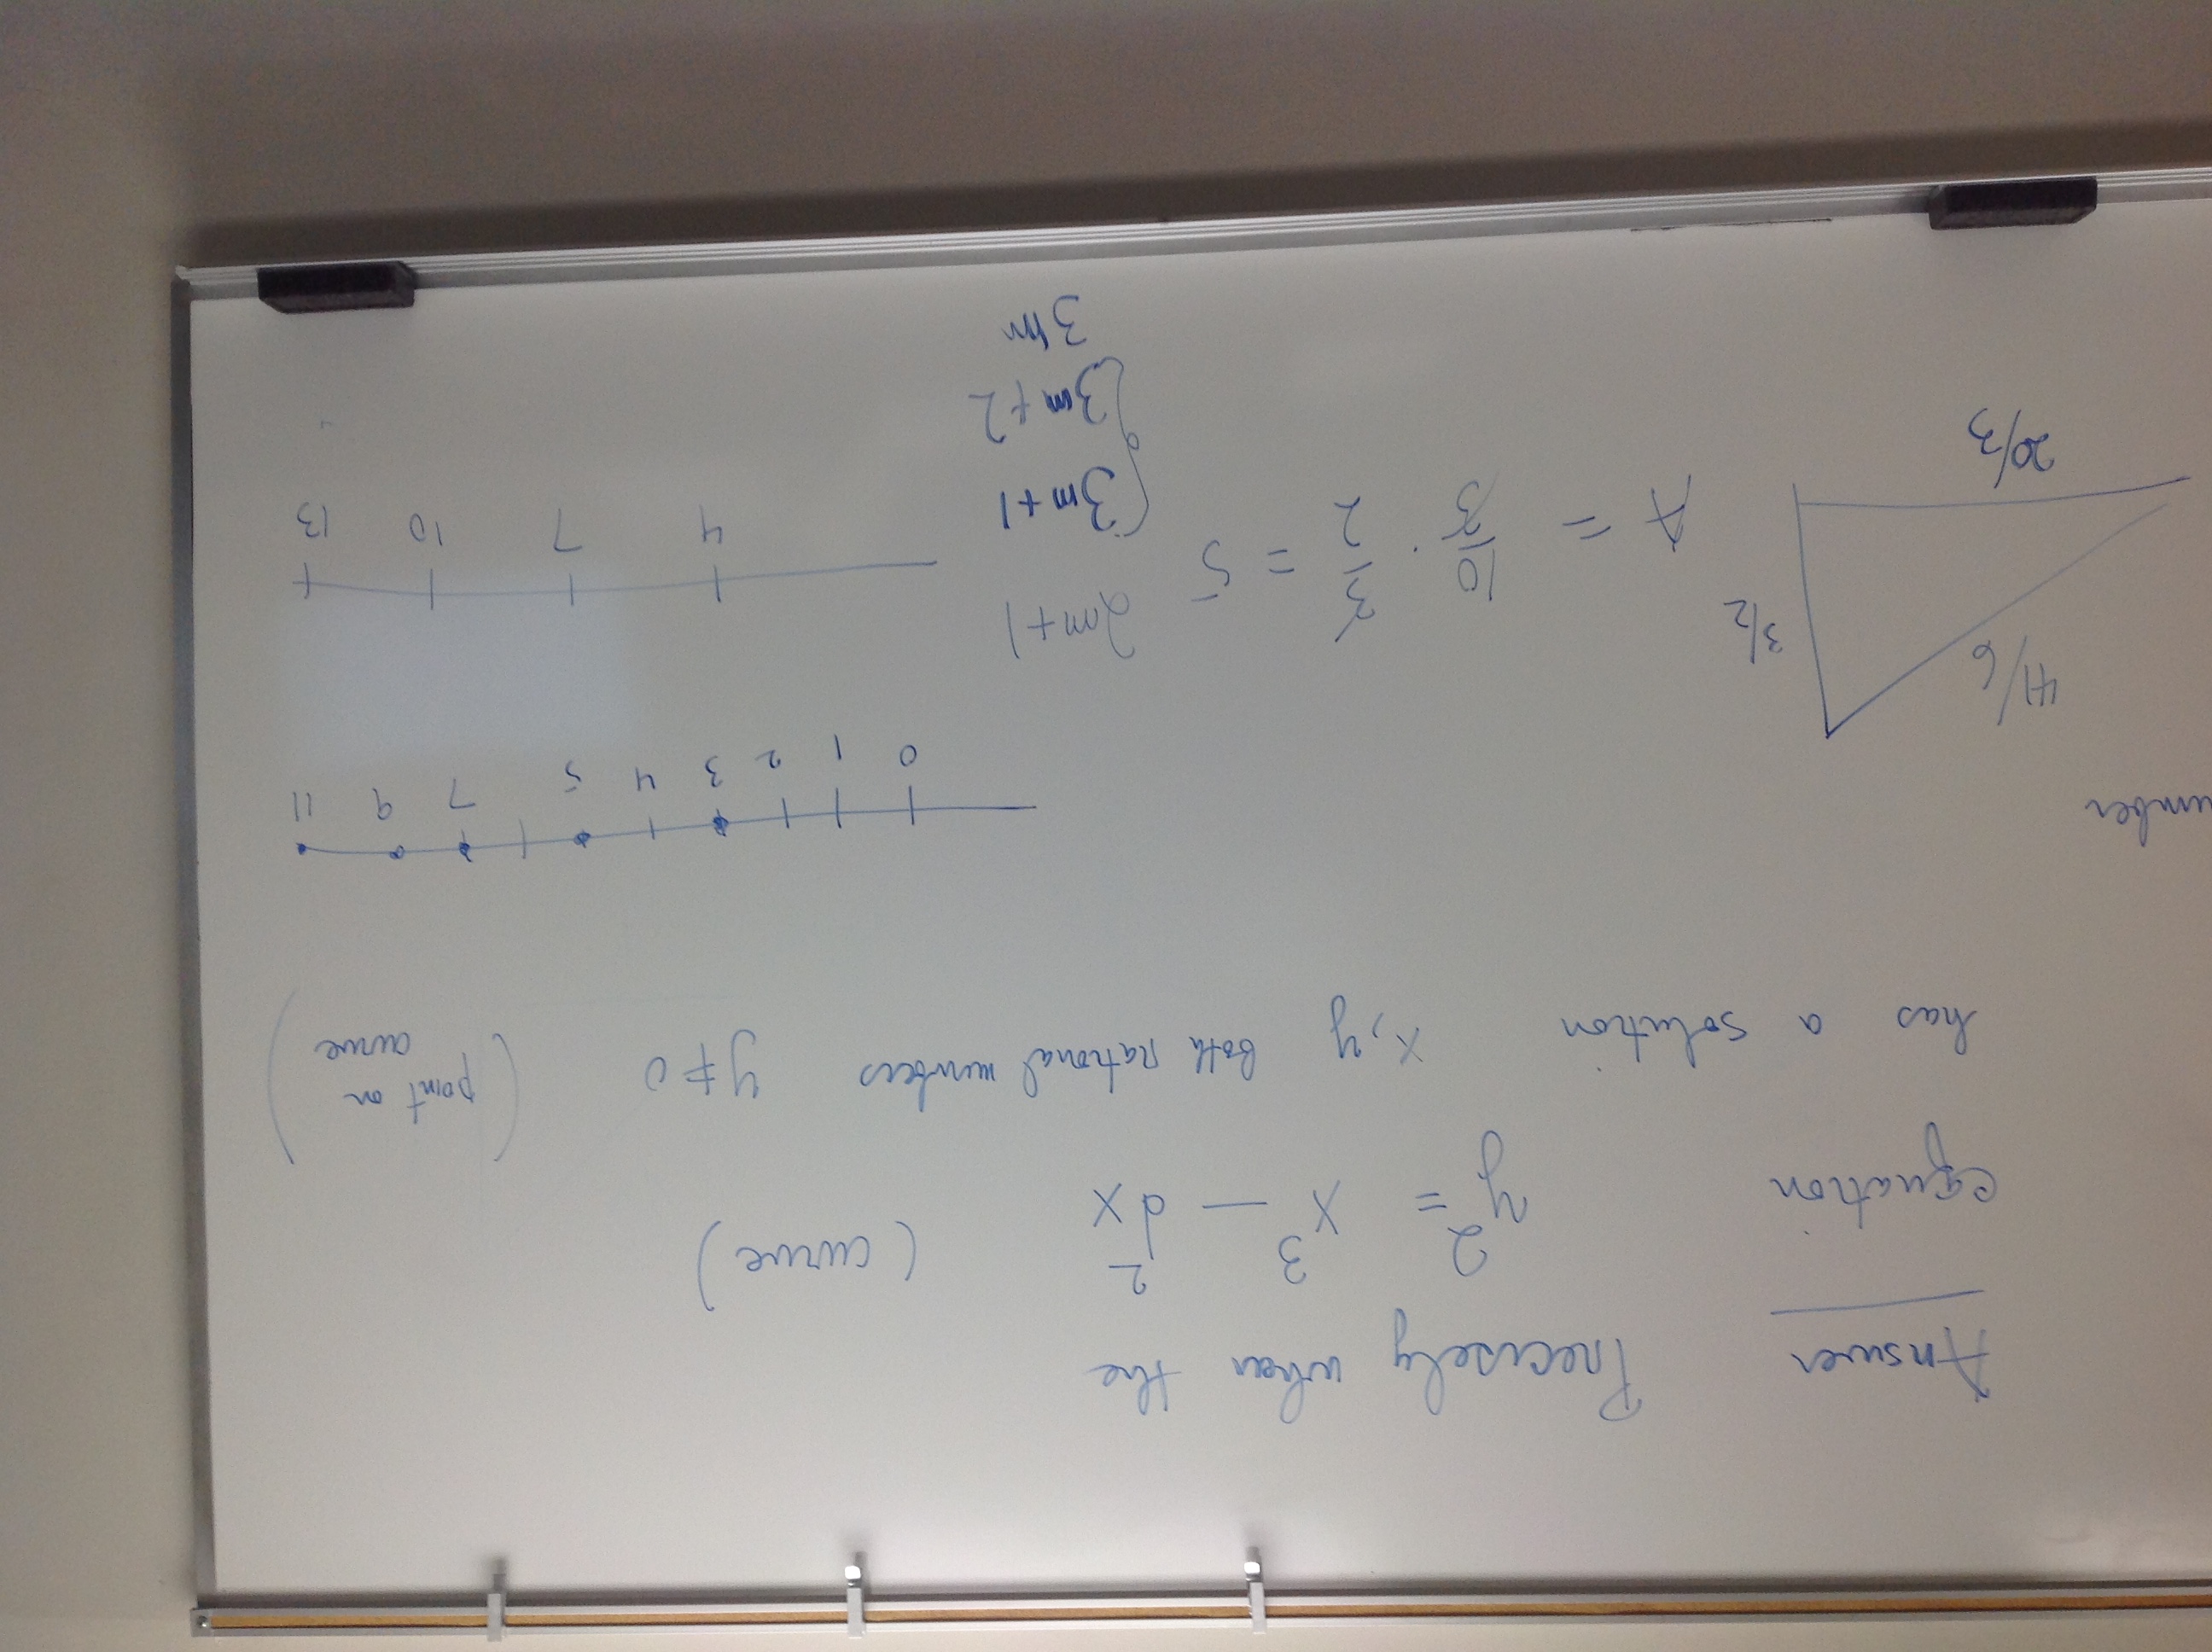 Answer Precisely when the
equation y² = x³ − d²x (curve)
has a solution x, y both rational numbers y ≠ 0 (point on curve)
umber
0 1 2 3 4 5 7 9 11
41/6
3/2
20/3
A = 10/3 · 3/2 = 5
2m+1
3m+1
3m+2
3m
4 7 10 13